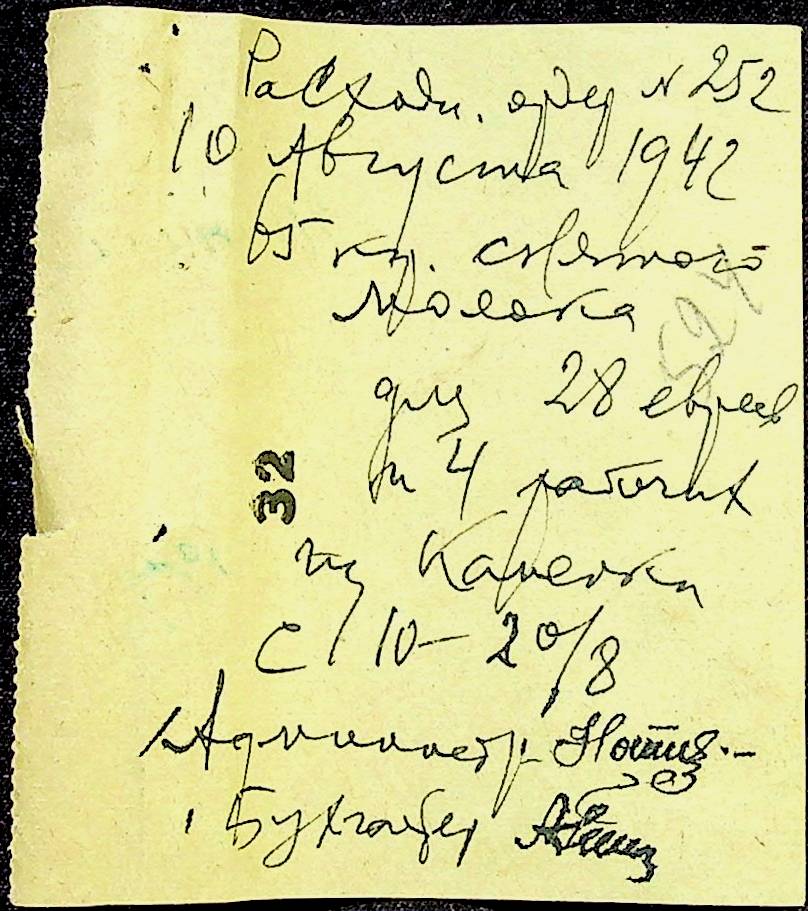 Расходн. ордер № 252
10 Августа 1942
65 кг. снятого
молока
для 28 евреев
и 4 рабочих
32
из Каменки
с 10-20/8
Администр.
Бухгалтер
524